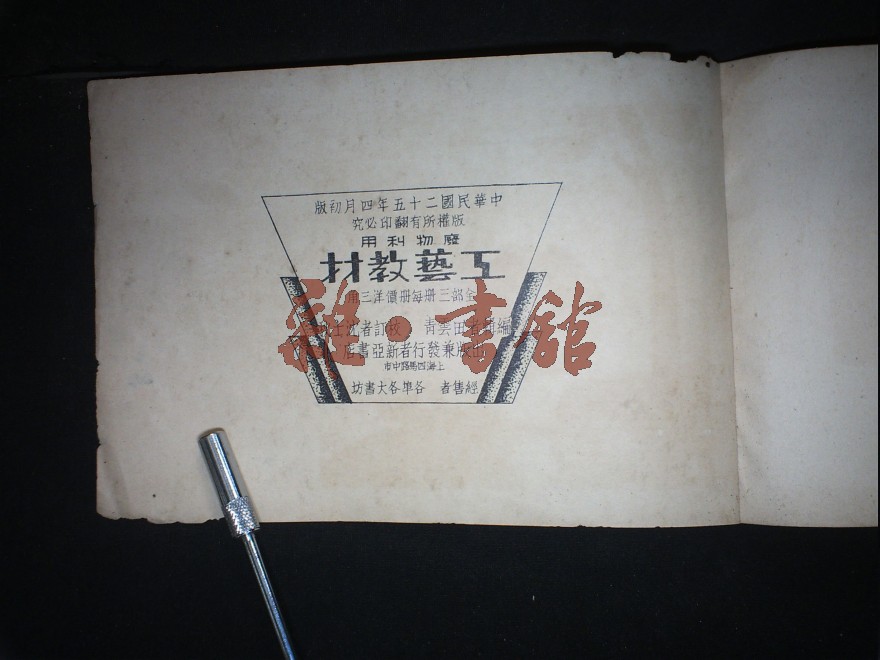 中華民國二十五年四月初版
版權所有翻印必究
廢物利用
工藝教材
全部三册每册價洋三角
編繪者田雲青 校訂者沈士
出版兼發行者新亞書店
上海四馬路中市
經售者 各埠各大書坊
雜·書舘